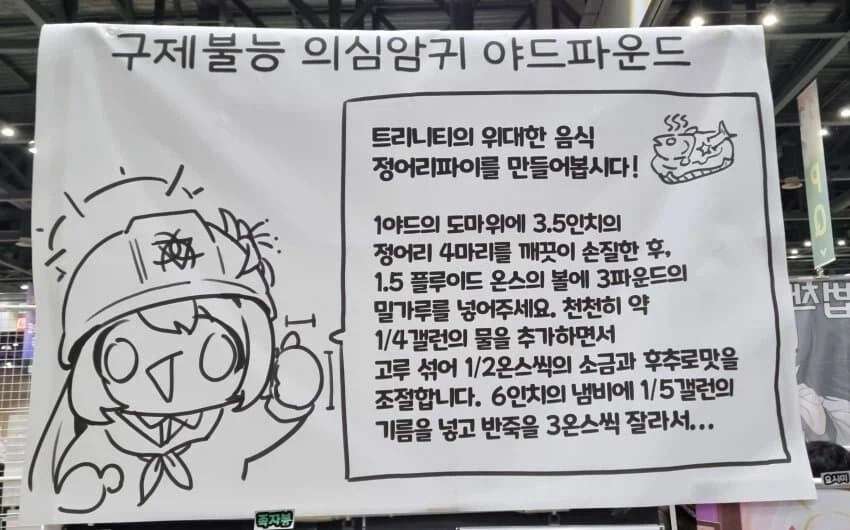 구제불능 의심암귀 야드파운드
트리니티의 위대한 음식
정어리파이를 만들어봅시다!
1야드의 도마위에 3.5인치의
정어리 4마리를 깨끗이 손질한 후,
1.5 플루이드 온스의 볼에 3파운드의
밀가루를 넣어주세요. 천천히 약
1/4갤런의 물을 추가하면서
고루 섞어 1/2온스씩의 소금과 후추로맛을
조절합니다. 6인치의 냄비에 1/5갤런의
기름을 넣고 반죽을 3온스씩 잘라서...
족자봉
요시미